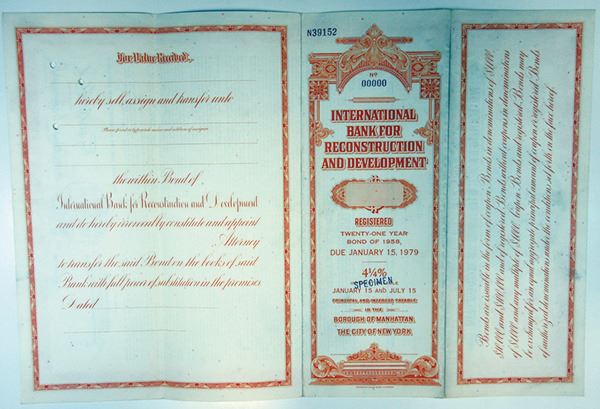 For Value Received
hereby sell, assign and transfer unto
Please print or typewrite name and address of assignee
the within Bond of
International Bank for Reconstruction and Development
and do hereby irrevocably constitute and appoint
Attorney
to transfer the said Bond on the books of said
Bank with full power of substitution in the premises.
Dated
N39152
No
00000
INTERNATIONAL
BANK FOR
RECONSTRUCTION
AND DEVELOPMENT
REGISTERED
TWENTY-ONE YEAR
BOND OF 1958,
DUE JANUARY 15, 1979
4¼%
SPECIMEN
JANUARY 15 AND JULY 15
PRINCIPAL AND INTEREST PAYABLE
IN THE
BOROUGH OF MANHATTAN,
THE CITY OF NEW YORK
Bonds are issuable in the form of coupon Bonds in denominations of $1,000
and of registered Bonds without coupons in denominations
of $1,000 and any multiple of $1,000. Coupon Bonds and registered Bonds may
be exchanged for an equal aggregate principal amount of coupon or registered Bonds
of authorized denominations under the conditions set forth on the face hereof.